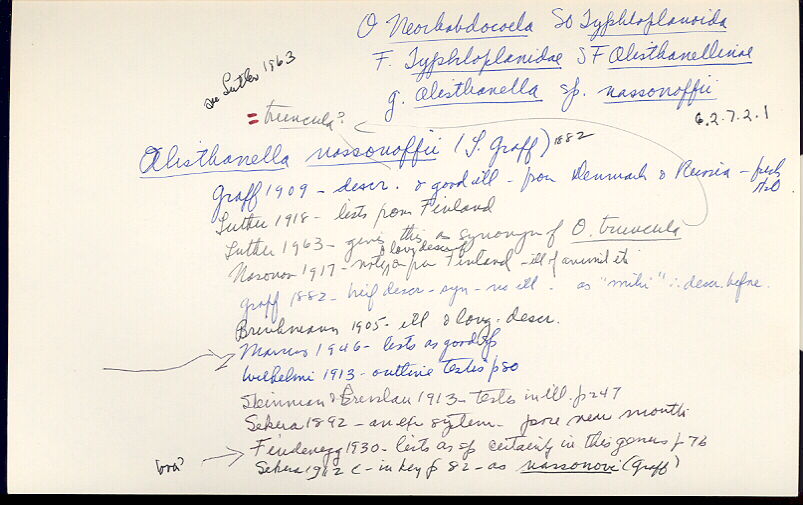 O Neorhabdocoela SO Typhloplanoida
F. Typhloplanidae SF Olisthanellinae
g. Olisthanella sp. nassonoffii
see Luther 1963
= truncula?
6.2.7.2.1
Olisthanella nassonoffii (L. Graff) 1882
Graff 1909 - descr. & good ill - from Denmark & Russia - fresh H2O
Luther 1918 - lists from Finland
Luther 1963 - gives this as synonym of O. truncula
& long descr of
Nasonov 1917 - Finland - ill of
Graff 1882 - brief descr - syn - no ill - as "mihi" ∴ descr. before.
Brinkmann 1905 - ill & long descr.
Marcus 1946 - lists as good sp
Wilhelmi 1913 - outline testis p 80
Steinmann & Bresslau 1913 - testes in ill. p 247
Sekera 1892 - an exr system - pore near mouth
Findenegg 1930 - lists as sp certainly in this genus p 76
Sekera 1912 c - in key p 82 - as nassonovi (Graff)